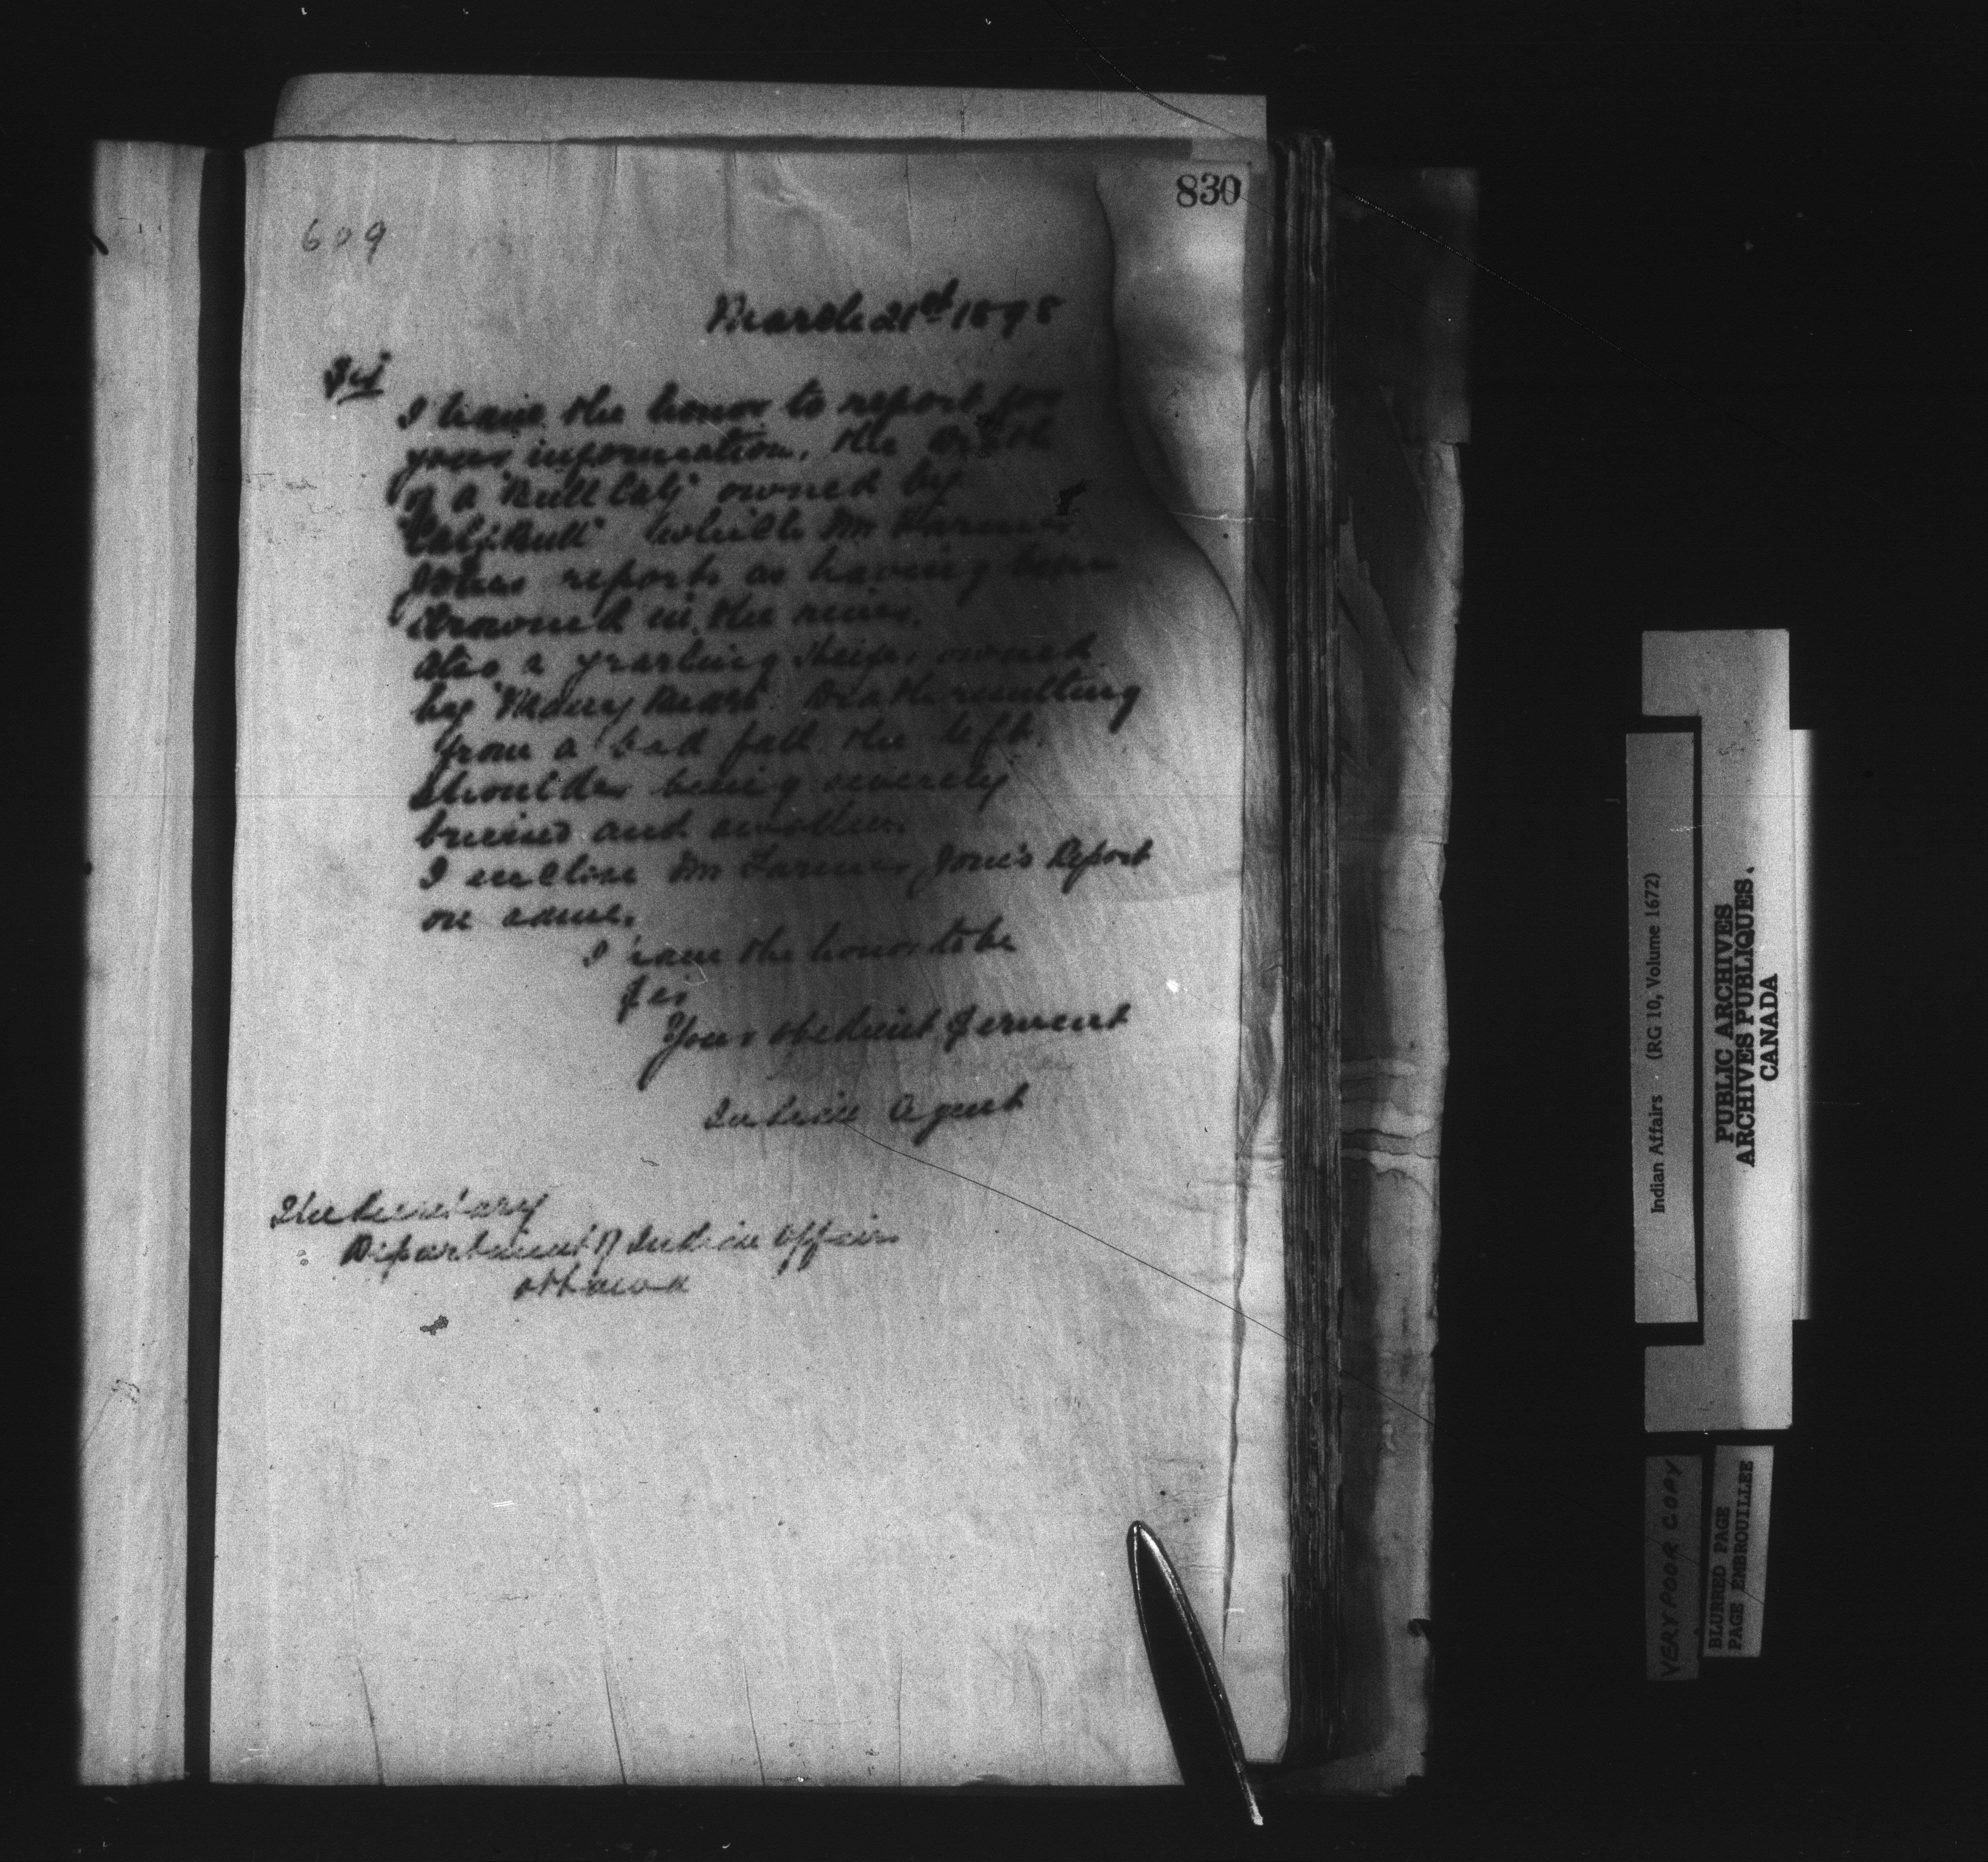 830
609
March 21st 1898
Sir
I have the honor to report for
your information, the death
of a "Bull Calf" owned by
"Calf Bull" which Mr Farmer
Jones reports as having been
drowned in the river.
Also a yearling Heifer owned
by "Many Bears" Death resulting
from a bad fall the left
shoulder being severely
bruised and swollen.
I enclose Mr Farmer Jone's Report
on same.
I have the honor to be
Sir
Your obedient Servant
Indian Agent
The Secretary
Department of Indian Affairs
Ottawa
Indian Affairs (RG 10, Volume 1672)
PUBLIC ARCHIVES
ARCHIVES PUBLIQUES
CANADA
VERY POOR COPY
BLURRED PAGE
PAGE EMBROUILLEE